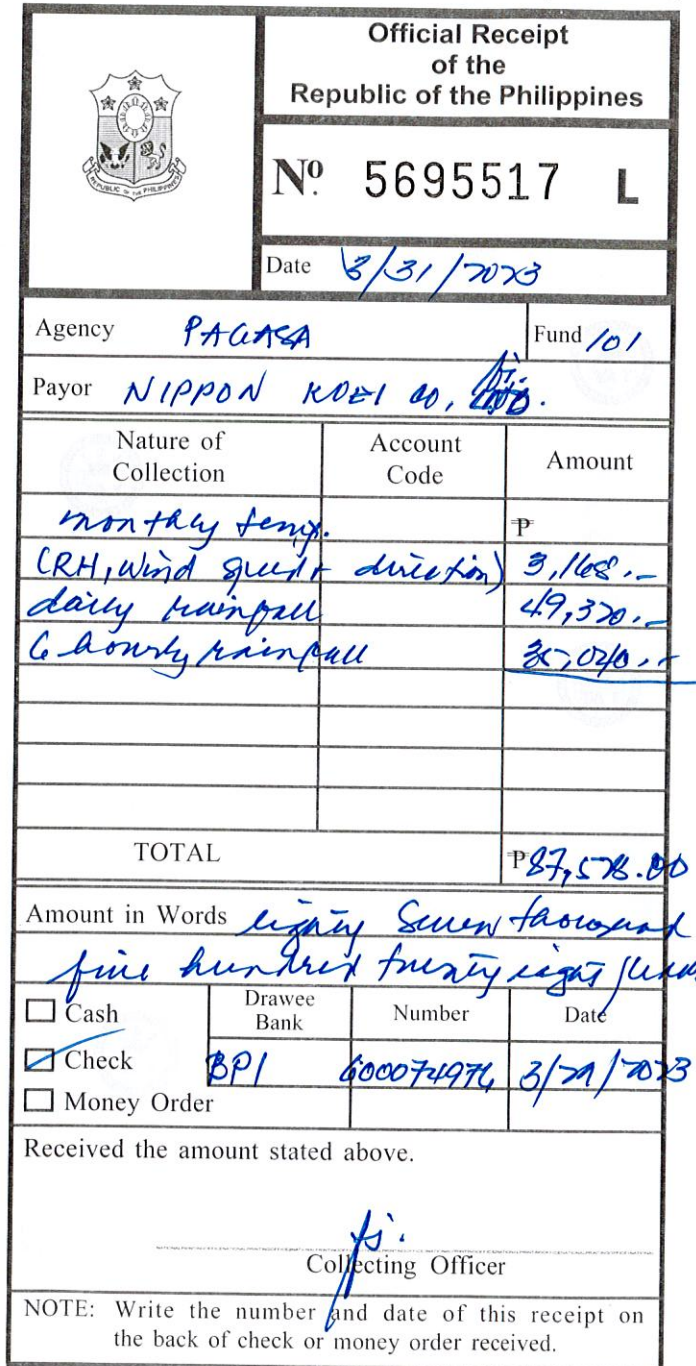 Official Receipt
of the
Republic of the Philippines
REPUBLIC OF THE PHILIPPINES
Nº. 5695517 L
Date 3/31/2023
Agency PAGASA Fund 101
Payor NIPPON KOEI CO,
Nature of Collection Account Code Amount
monthly temp. ₱
(RH, wind speed + direction) 3,168.-
daily rainfall 49,320.-
6 hourly rainfall 35,040.-
TOTAL ₱87,528.00
Amount in Words eighty seven thousand
five hundred twenty eight
Cash Drawee Bank Number Date
Check BPI 3/29/2023
Money Order
Received the amount stated above.
Collecting Officer
NOTE: Write the number and date of this receipt on
the back of check or money order received.